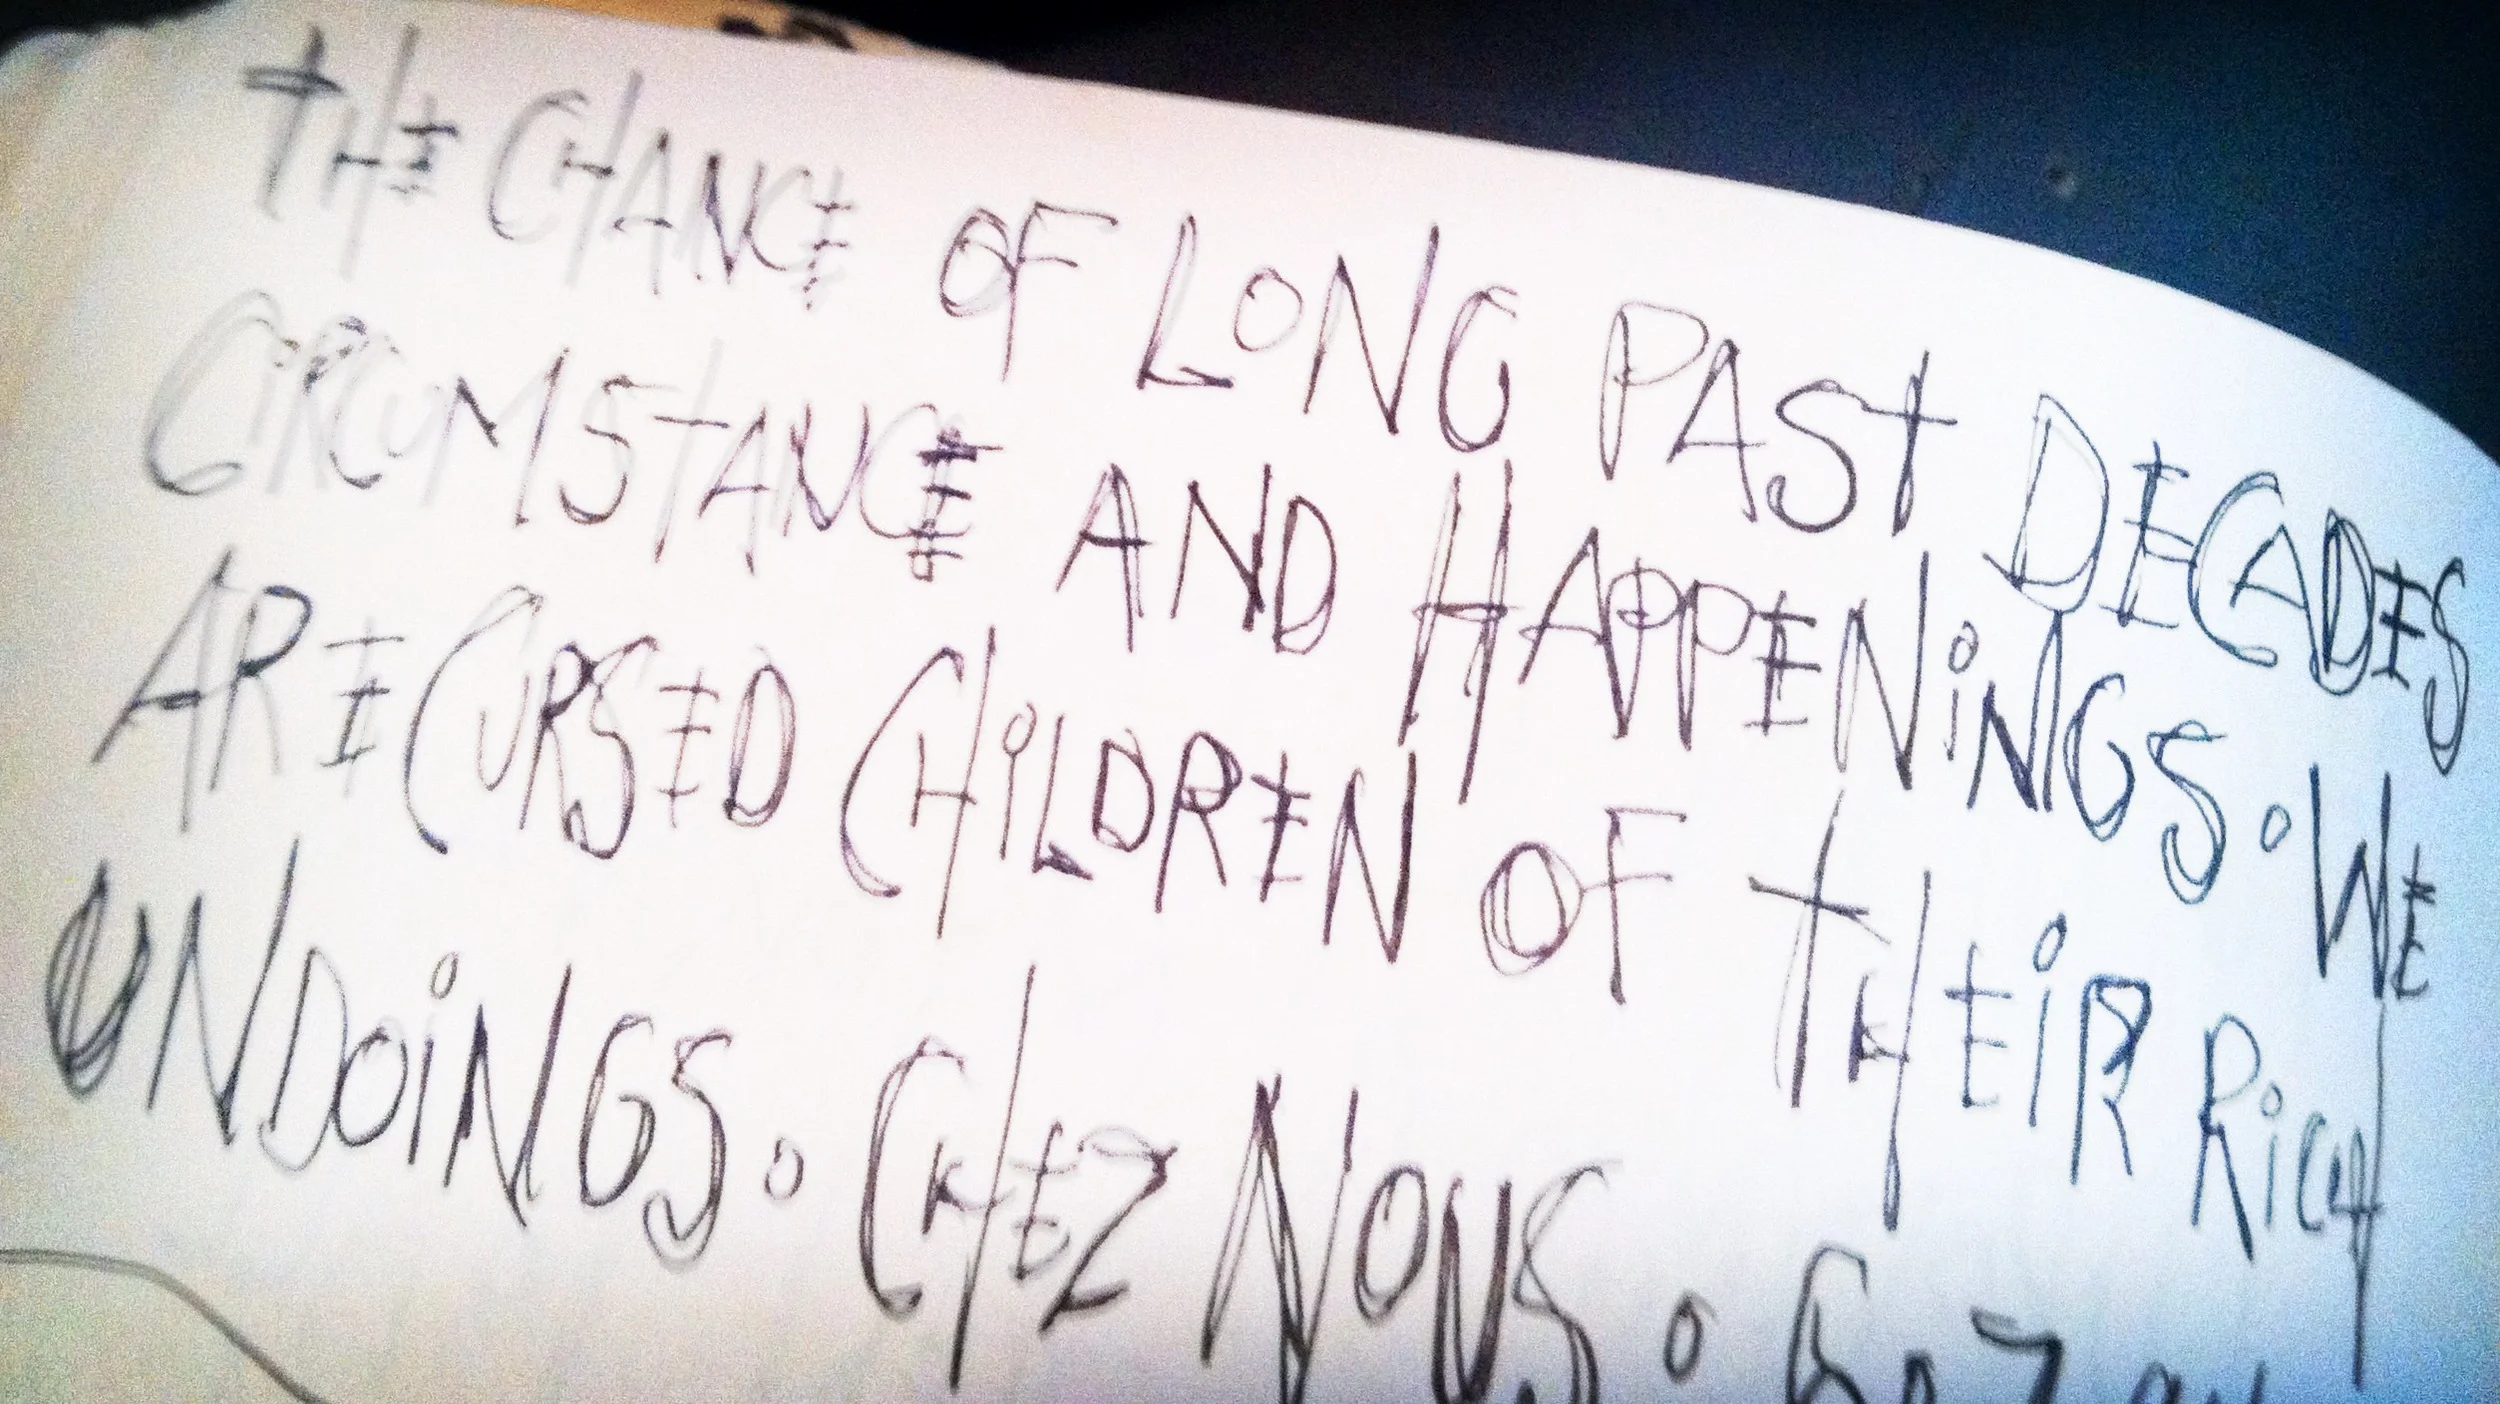 THE CHANCE OF LONG PAST DECADES
CIRCUMSTANCE AND HAPPENiNGS. WE
ARE CURSED CHiLDREN OF THEiR RiCH
UNDOiNGS. CHEZ NOUS.